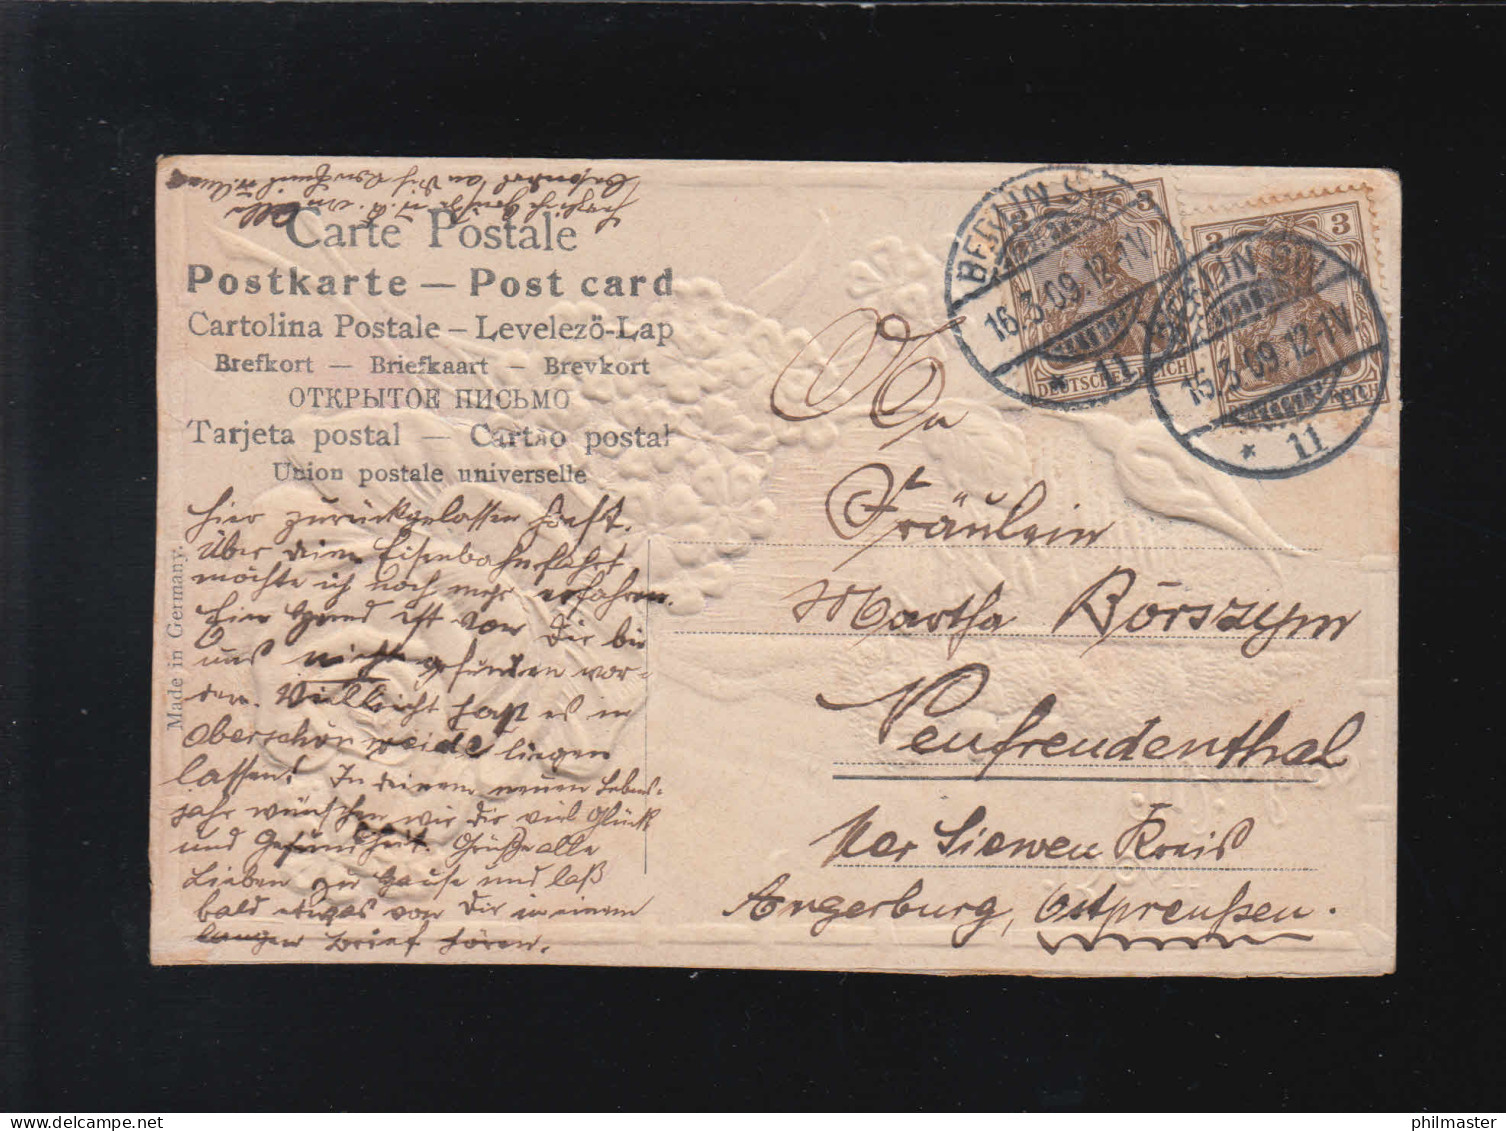 Carte Postale
Postkarte — Post card
Cartolina Postale — Levelező-Lap
Brefkort — Briefkaart — Brevkort
ОТКРЫТОЕ ПИСЬМО
Tarjeta postal — Cartão postal
Union postale universelle
Made in Germany.
hier zurückgelassen hast.
Über deine Eisenbahnfahrt
möchte ich noch mehr erfahren.
Hier ist von Dir bei
uns nicht gefunden wor-
den. Vielleicht hast es in
Oberschönweide liegen
lassen! In deinem neuen Lebens-
jahr wünschen wir dir viel Glück
und Gesundheit. Grüße alle
Lieben zu Hause und laß
bald etwas von Dir in einem
langen Brief hören.
BERLIN SW
16.3.09.12-1V.
* 11
DEUTSCHES REICH
3
BERLIN SW
16.3.09.12-1V.
* 11
REICH
3 3
An
Fräulein
Martha Börszym
Neufreudenthal
Kreis
Angerburg, Ostpreußen.
philmaster